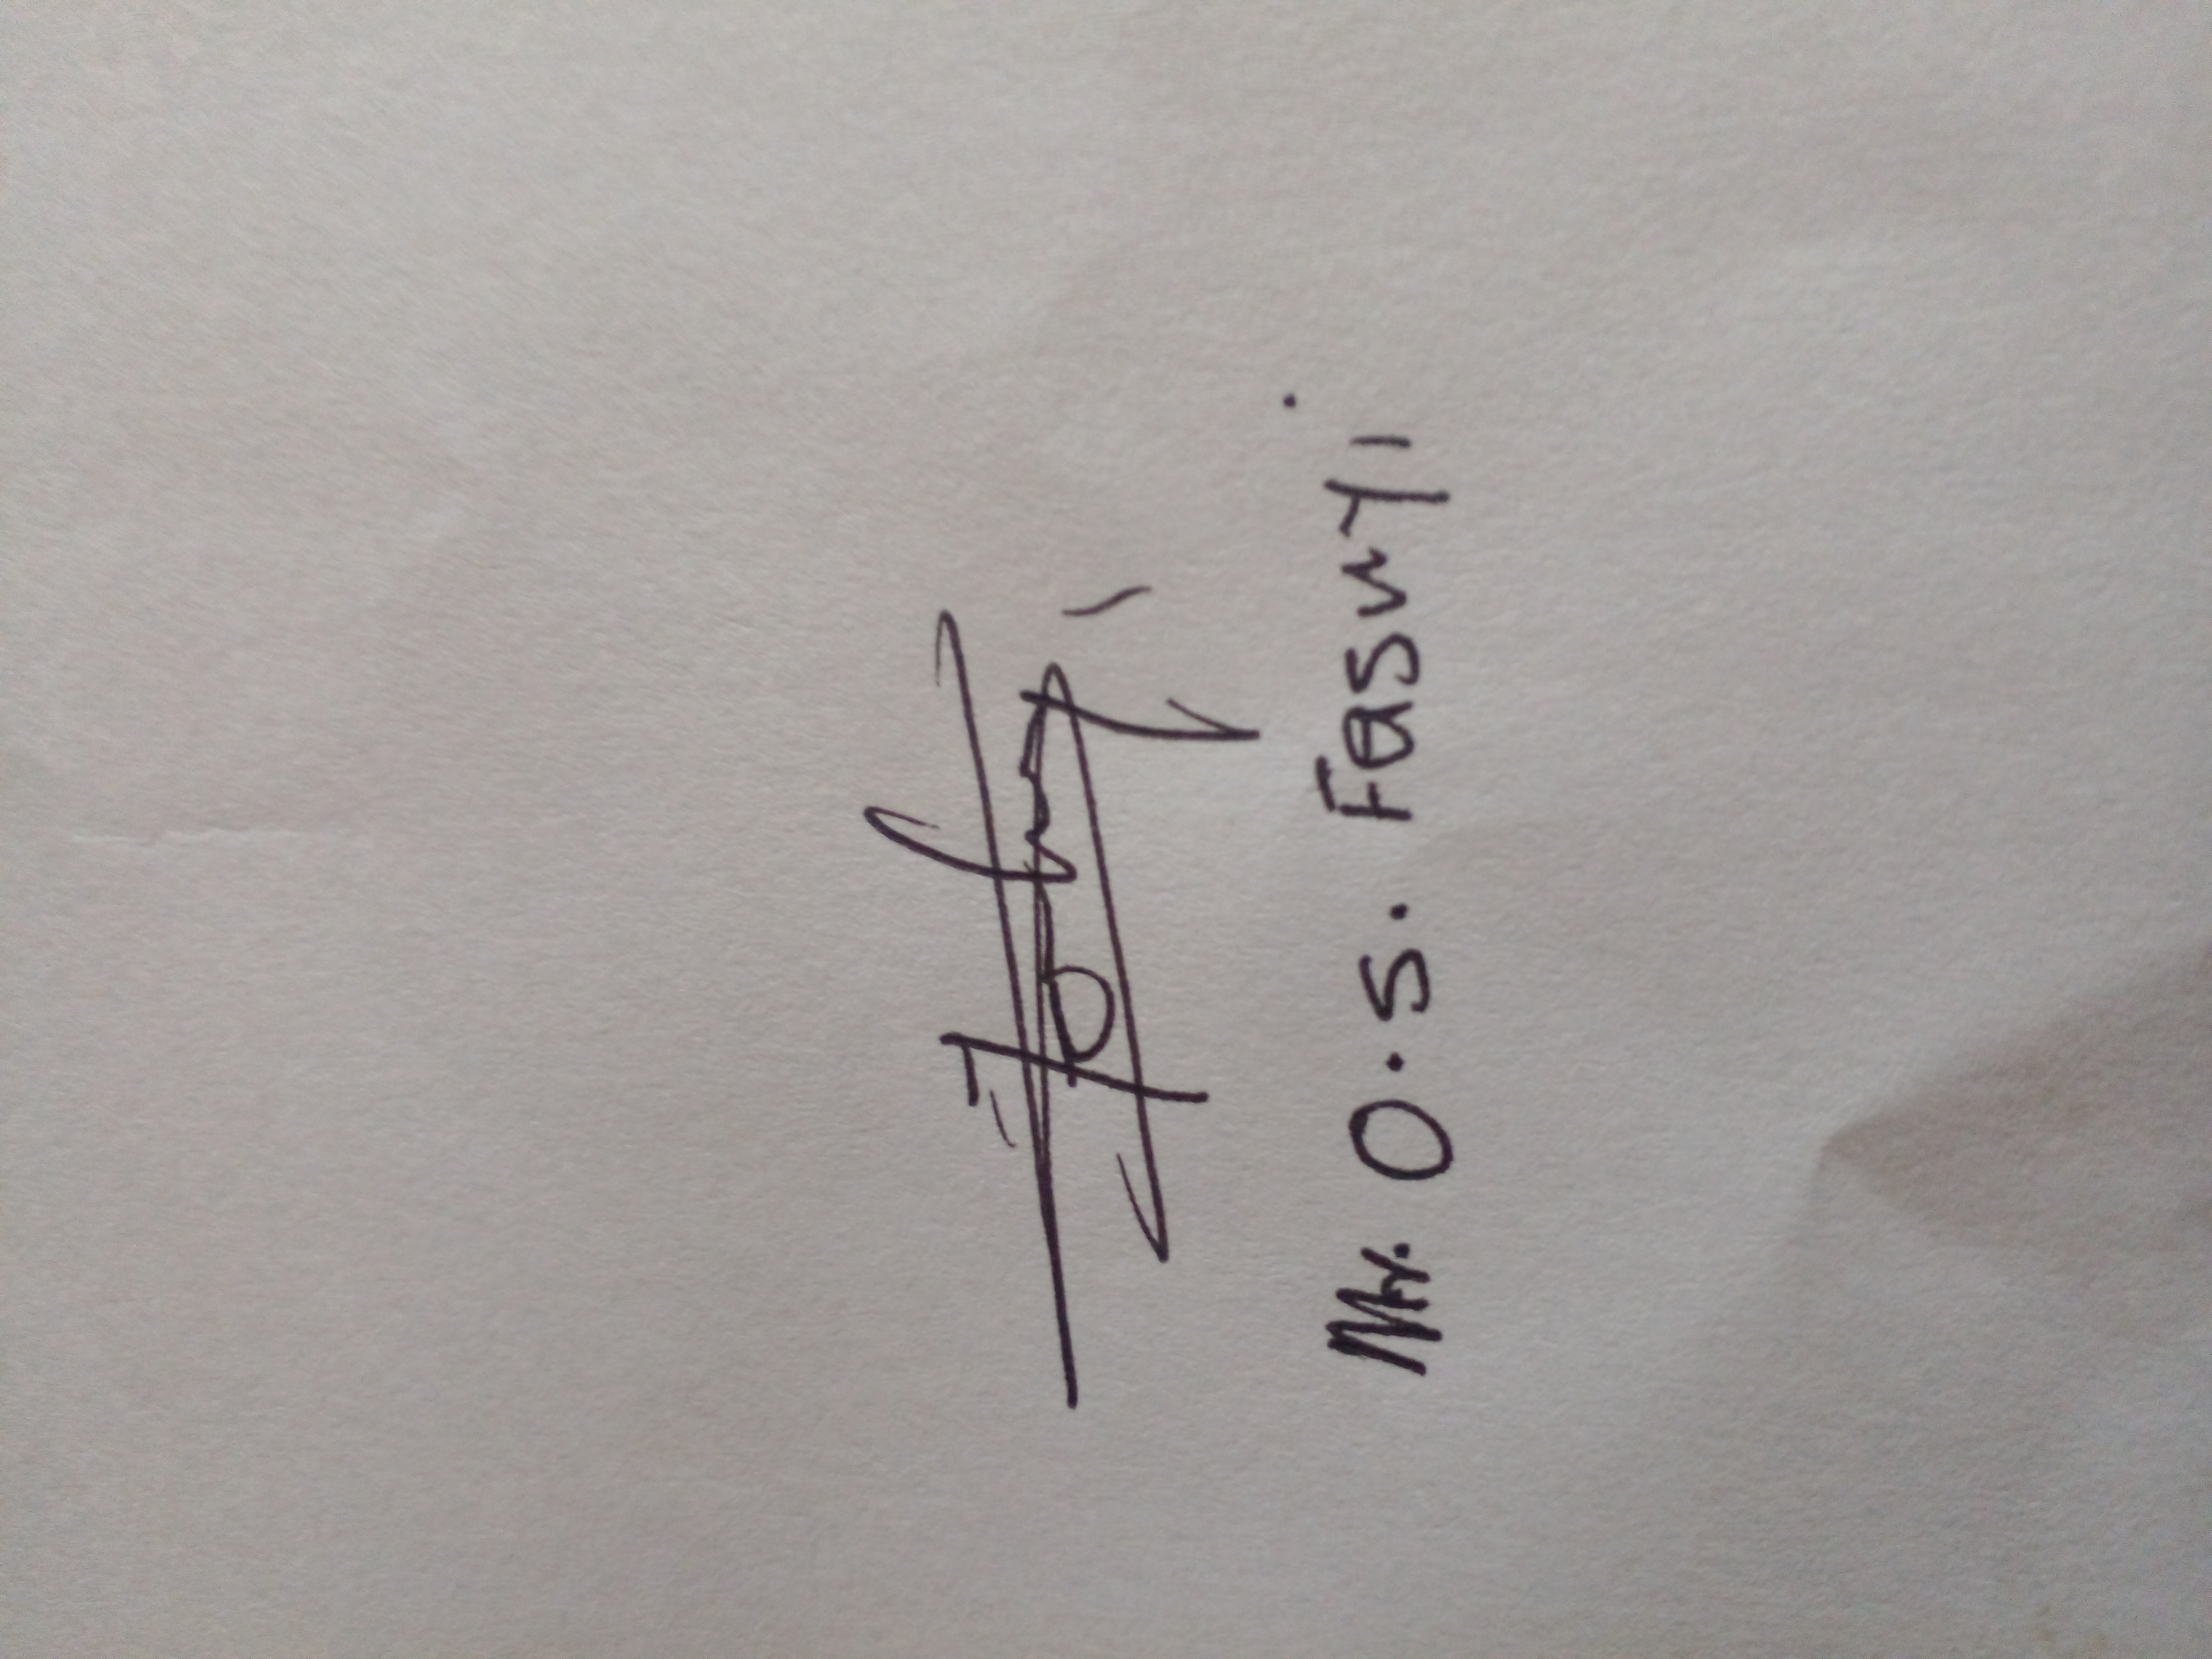 Mr. O.S. Fasuyi